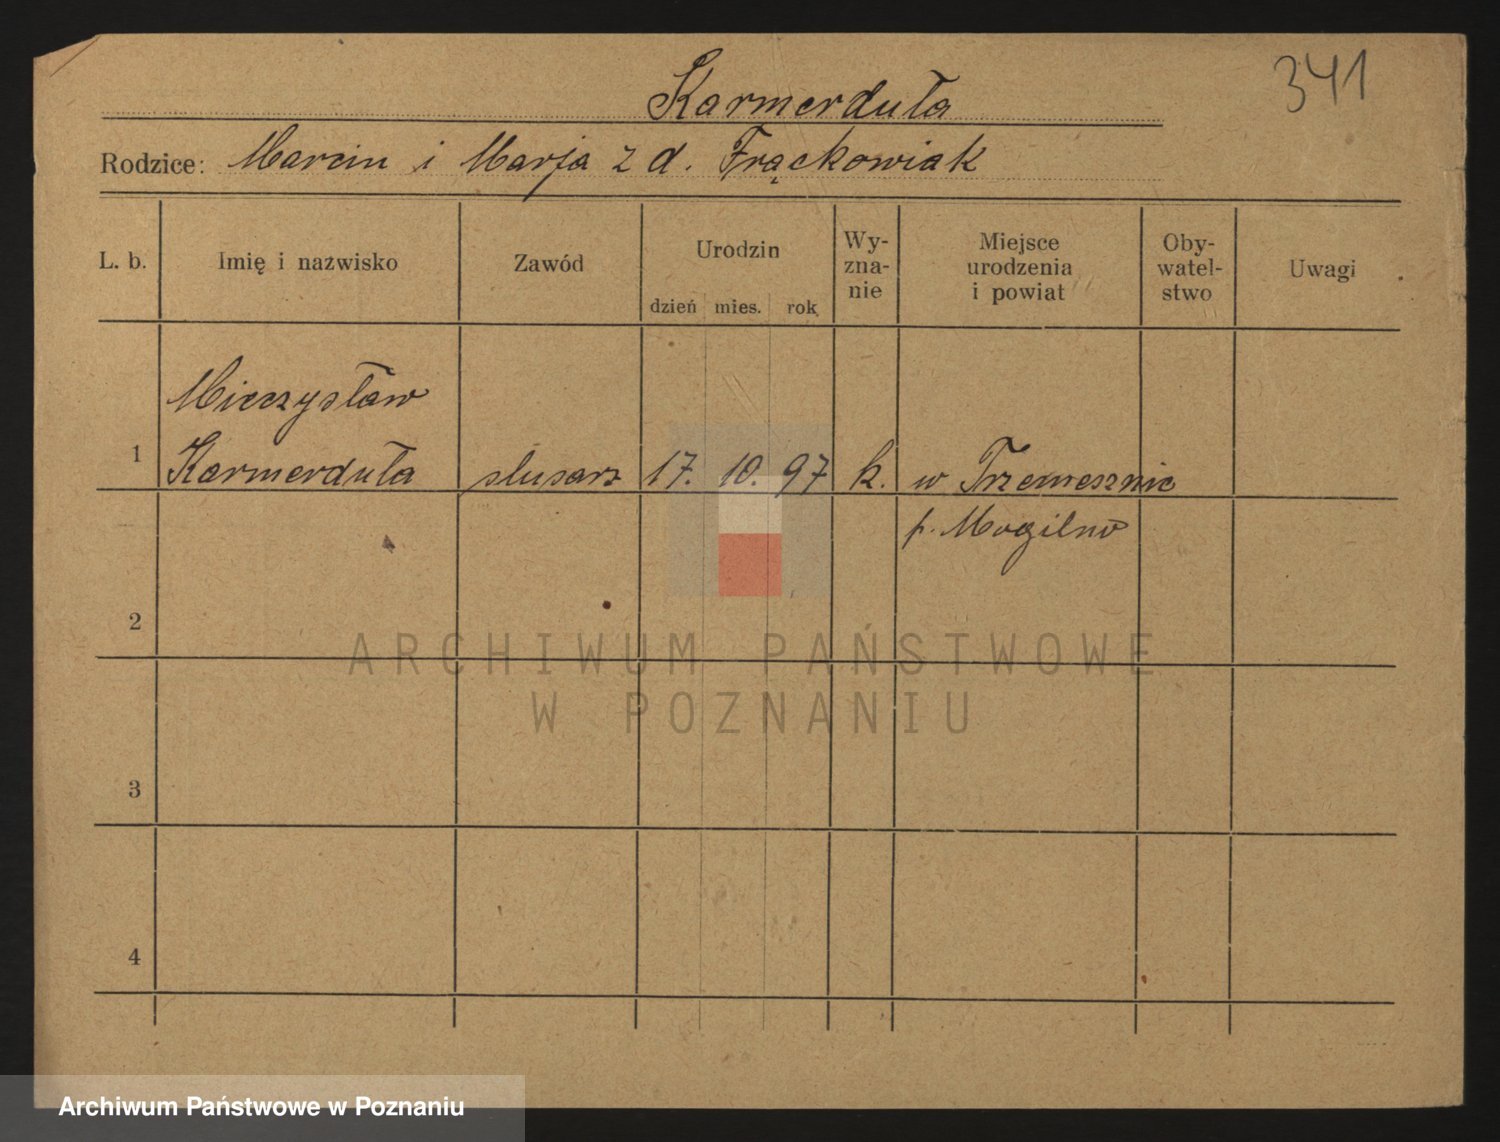 341
Karmerduła
Rodzice: Marcin i Marja z d. Frąckowiak
L. b. Imię i nazwisko Zawód Urodzin dzień mies. rok Wy-zna-nie Miejsce urodzenia i powiat Oby-watel-stwo Uwagi
Mieczysław
1 Karmerduła slusarz 17. 10. 97 k. w Trzemesznie
p. Mogilno
2
ARCHIWUM PAŃSTWOWE
W POZNANIU
3
4
Archiwum Państwowe w Poznaniu